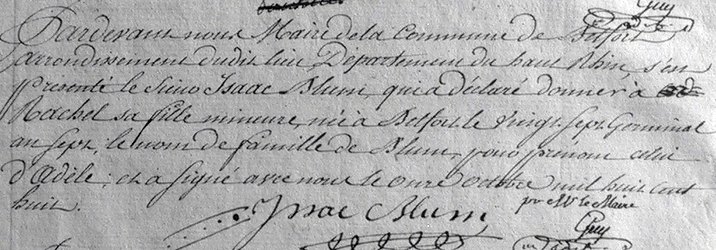 Guy
Pardevant nous Maire de la Commune de Belfort
arrondissement dudit lieu Département du haut Rhin, s'en
présenté le Sieur Isaac Blum, qui a déclaré donner à
Rachel sa fille mineure, née à Belfort le Vingt sept Germinal
an Sept, le nom de famille de Blum, pour prénom celui
d'Adèle; et a signé avec nous le onze Octobre mil huit cent
huit.
Issac Blum
pr Mr le Maire
Guy